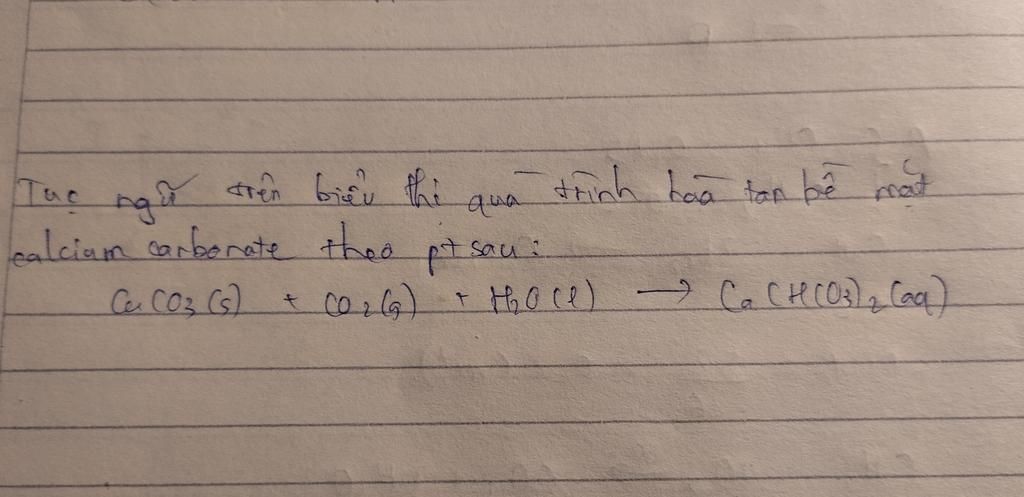 Tục ngữ trên biểu thị quá trình hoà tan bề mặt
calcium carbonate theo pt sau:
CaCO3 (s) + CO2 (g) + H2O (l) → Ca(HCO3)2 (aq)